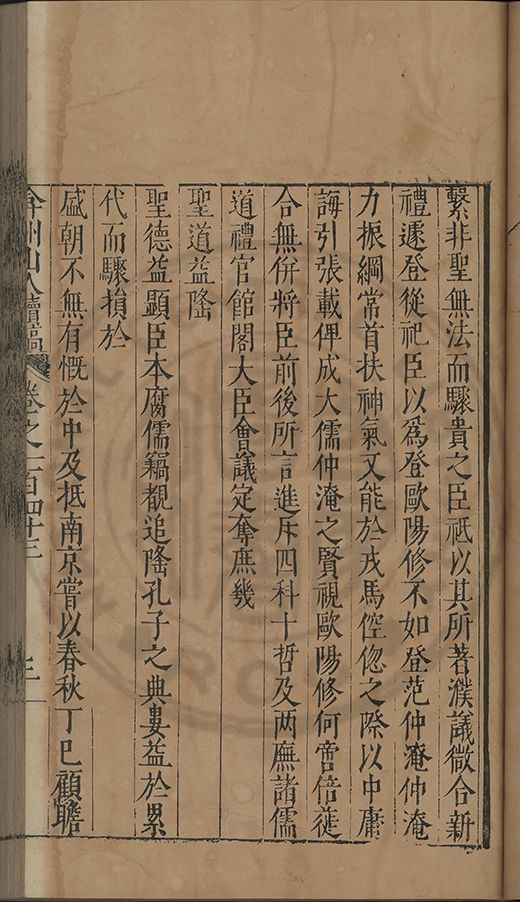 繫非聖無法而驟貴之臣祇以其所著濮議微合新
禮遽登從祀臣以爲登歐陽修不如登范仲淹仲淹
力振綱常首扶神氣又能於戎馬倥偬之際以中庸
誨引張載俾成大儒仲淹之賢視歐陽修何啻倍蓰
合無併將臣前後所言進斥四科十哲及两廡諸儒
道禮官館閣大臣會議定奪庶幾
聖道益隆
聖德益顯臣本腐儒竊覩追隆孔子之典婁益於累
代而驟損於
盛朝不無有慨於中及抵南京嘗以春秋丁巳顧瞻
弇州山人續稿 卷之一百四十三 三